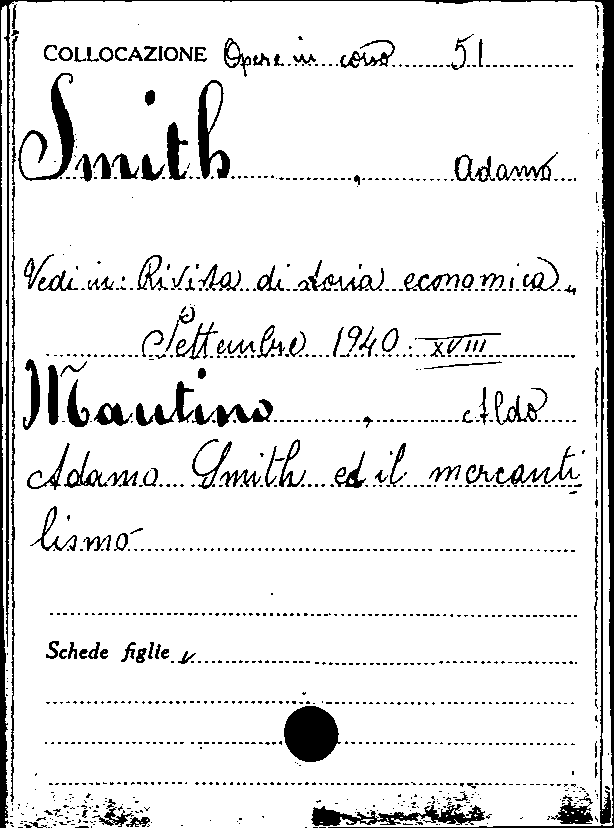 COLLOCAZIONE Opere in corso 51
Smith, Adamo
Vedi in: Rivista di storia economica.
Settembre 1940. XVIII
Mautino, Aldo
Adamo Smith ed il mercanti
lismo
Schede figlie